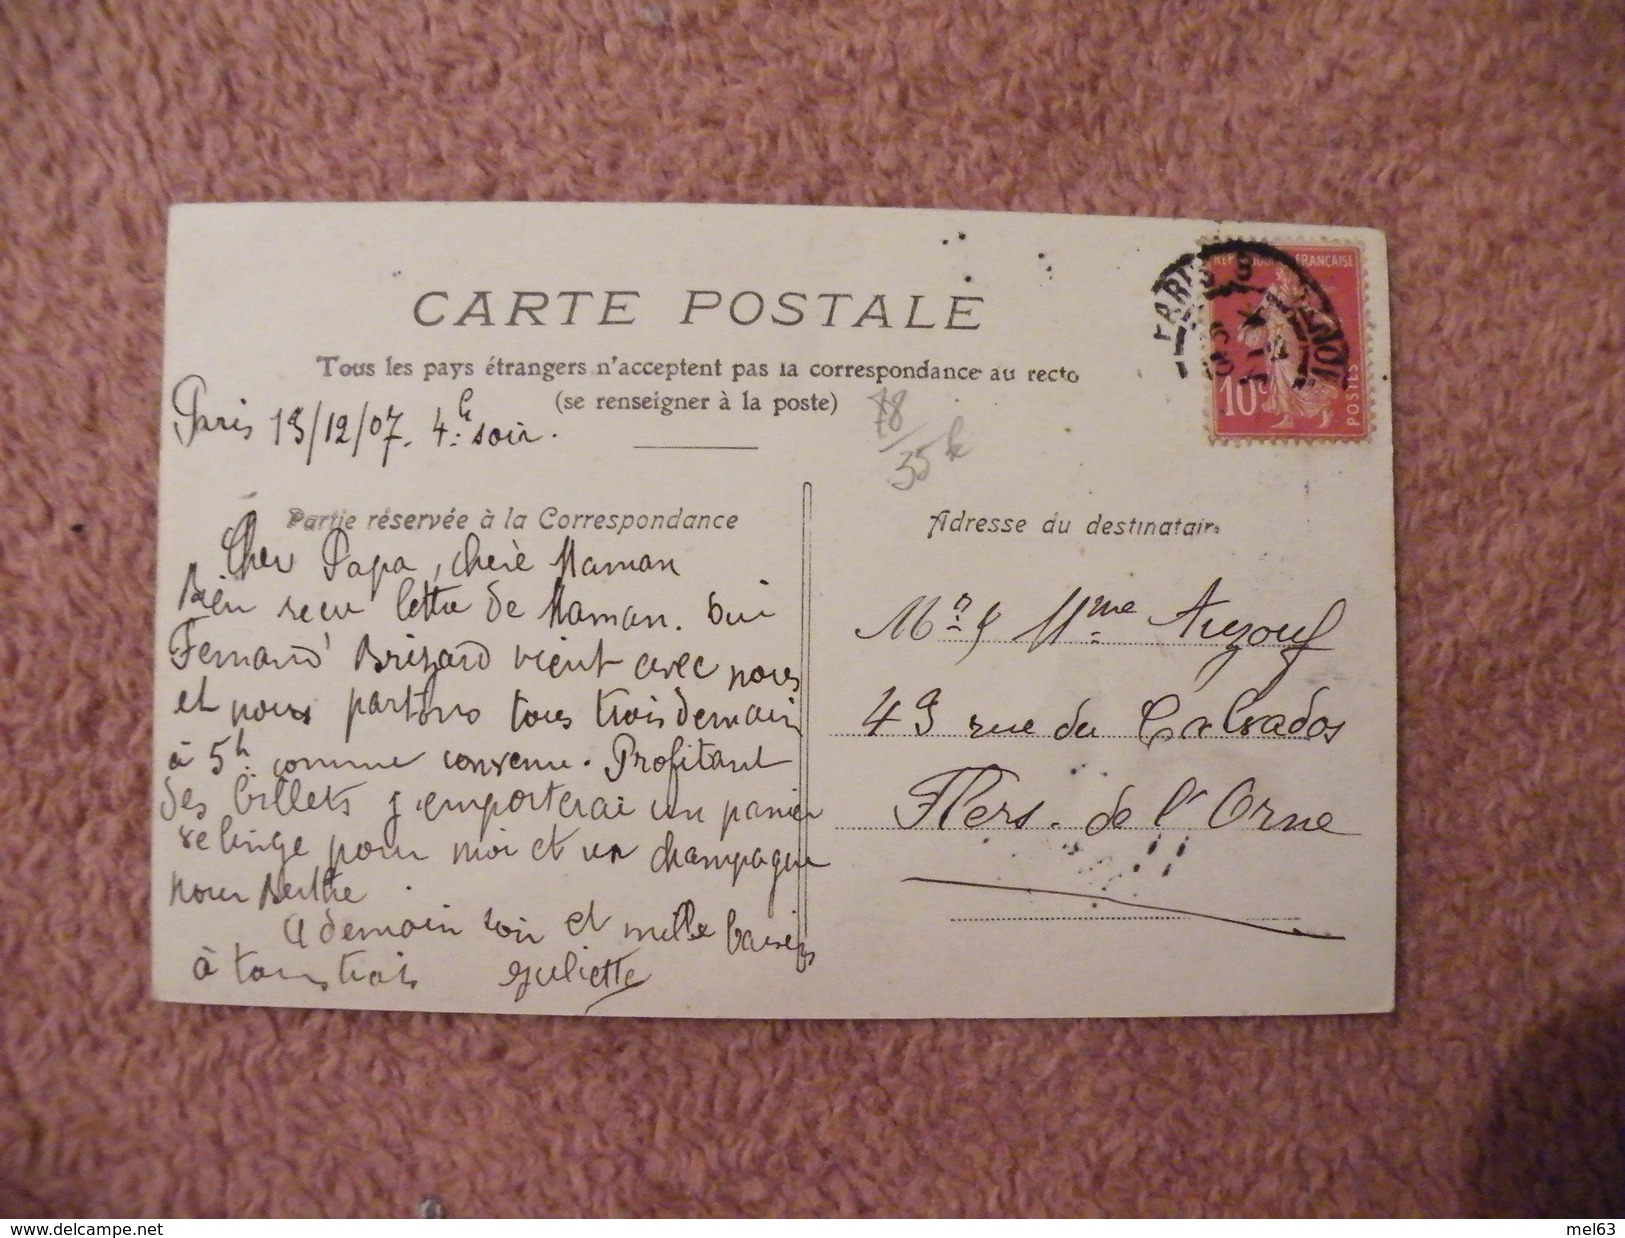 CARTE POSTALE
Tous les pays étrangers n'acceptent pas la correspondance au recto
(se renseigner à la poste)
Paris 13/12/07. 4h soir.
78
35
Partie réservée à la Correspondance
Cher Papa, chère Maman
Bien reçu lettre de Maman. Oui
Fernand Brizard vient avec nous
et nous partons tous trois demain
à 5h comme convenu. Profitant
des billets j'emporterai un panier
de linge pour moi et un champagne
pour Berthe.
A demain soir et mille baisers
à tous trois Juliette
REPUBLIQUE FRANÇAISE
10c
POSTES
PARIS
Adresse du destinataire
Mr & Mme Auzouf
49 rue du Calvados
Flers. de l'Orne
delcampe.net
mel63